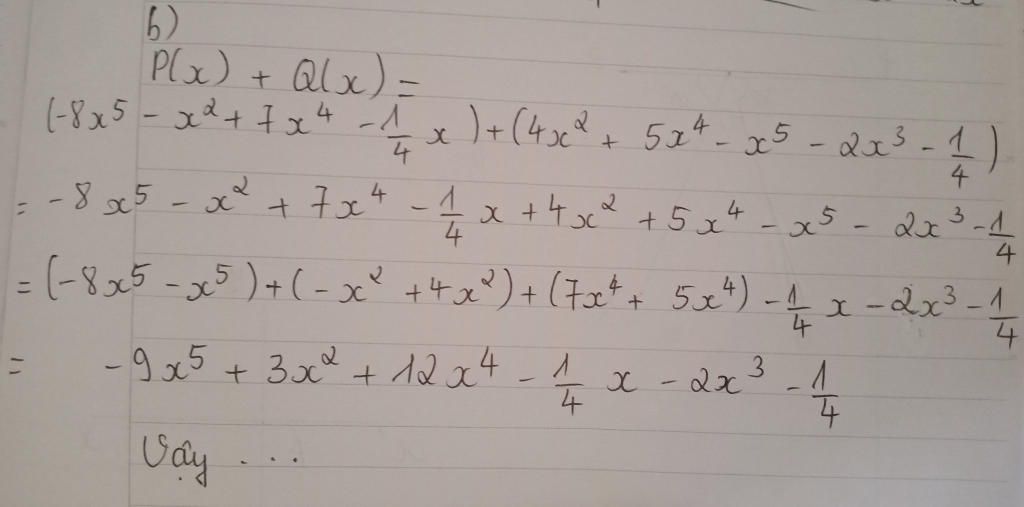 b)
P(x) + Q(x) =
(-8x⁵ - x² + 7x⁴ - 1/4 x) + (4x² + 5x⁴ - x⁵ - 2x³ - 1/4)
= -8x⁵ - x² + 7x⁴ - 1/4 x + 4x² + 5x⁴ - x⁵ - 2x³ - 1/4
= (-8x⁵ - x⁵) + (-x² + 4x²) + (7x⁴ + 5x⁴) - 1/4 x - 2x³ - 1/4
= -9x⁵ + 3x² + 12x⁴ - 1/4 x - 2x³ - 1/4
Vậy ...